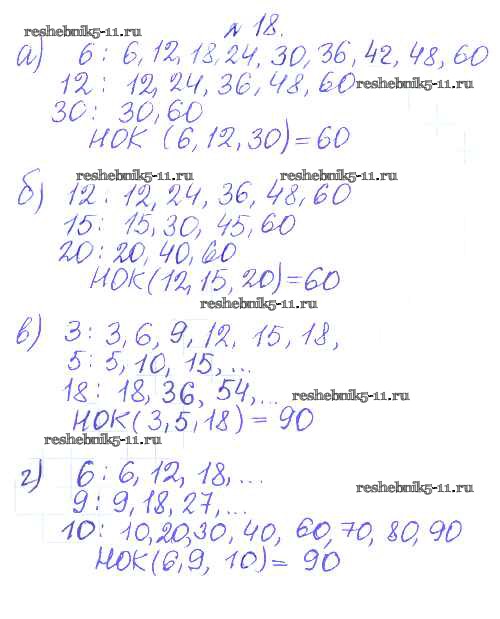 № 18.
reshebnik5-11.ru
а) 6: 6, 12, 18, 24, 30, 36, 42, 48, 60
12: 12, 24, 36, 48, 60 reshebnik5-11.ru
30: 30, 60
НОК (6, 12, 30) = 60
reshebnik5-11.ru reshebnik5-11.ru
б) 12: 12, 24, 36, 48, 60
15: 15, 30, 45, 60
20: 20, 40, 60
НОК (12, 15, 20) = 60
reshebnik5-11.ru
в) 3: 3, 6, 9, 12, 15, 18,
5: 5, 10, 15, ...
18: 18, 36, 54, ... reshebnik5-11.ru
НОК (3, 5, 18) = 90
reshebnik5-11.ru
г) 6: 6, 12, 18, ...
9: 9, 18, 27, ... reshebnik5-11.ru
10: 10, 20, 30, 40, 60, 70, 80, 90
НОК (6, 9, 10) = 90